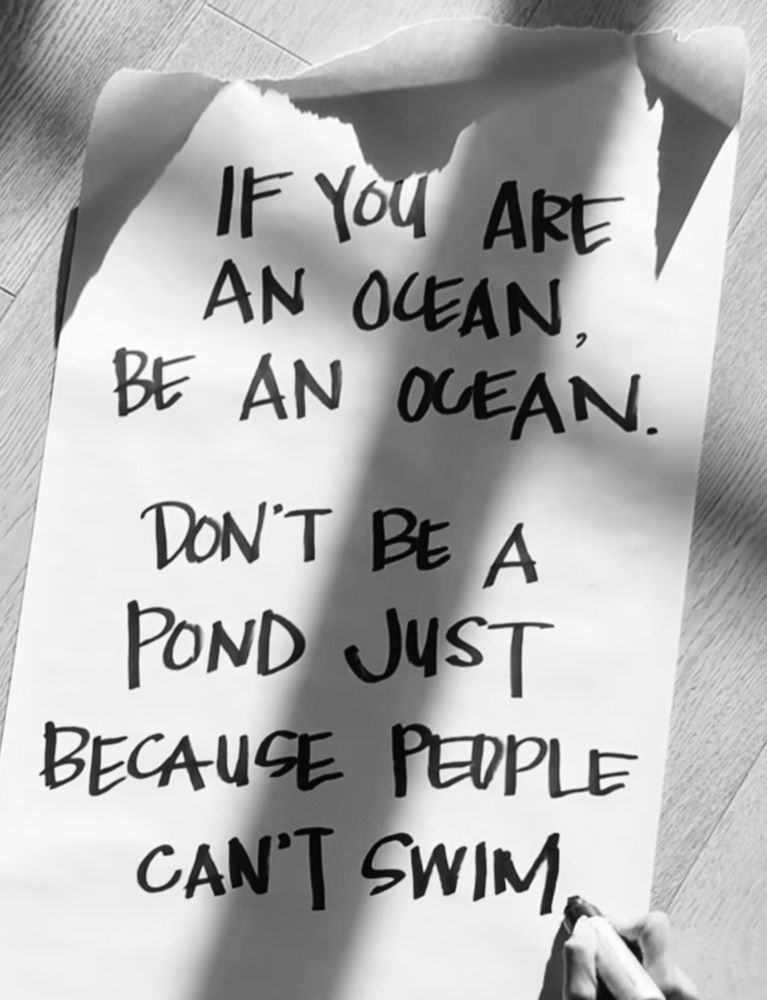 IF YOU ARE
AN OCEAN,
BE AN OCEAN.
DON'T BE A
POND JUST
BECAUSE PEOPLE
CAN'T SWIM